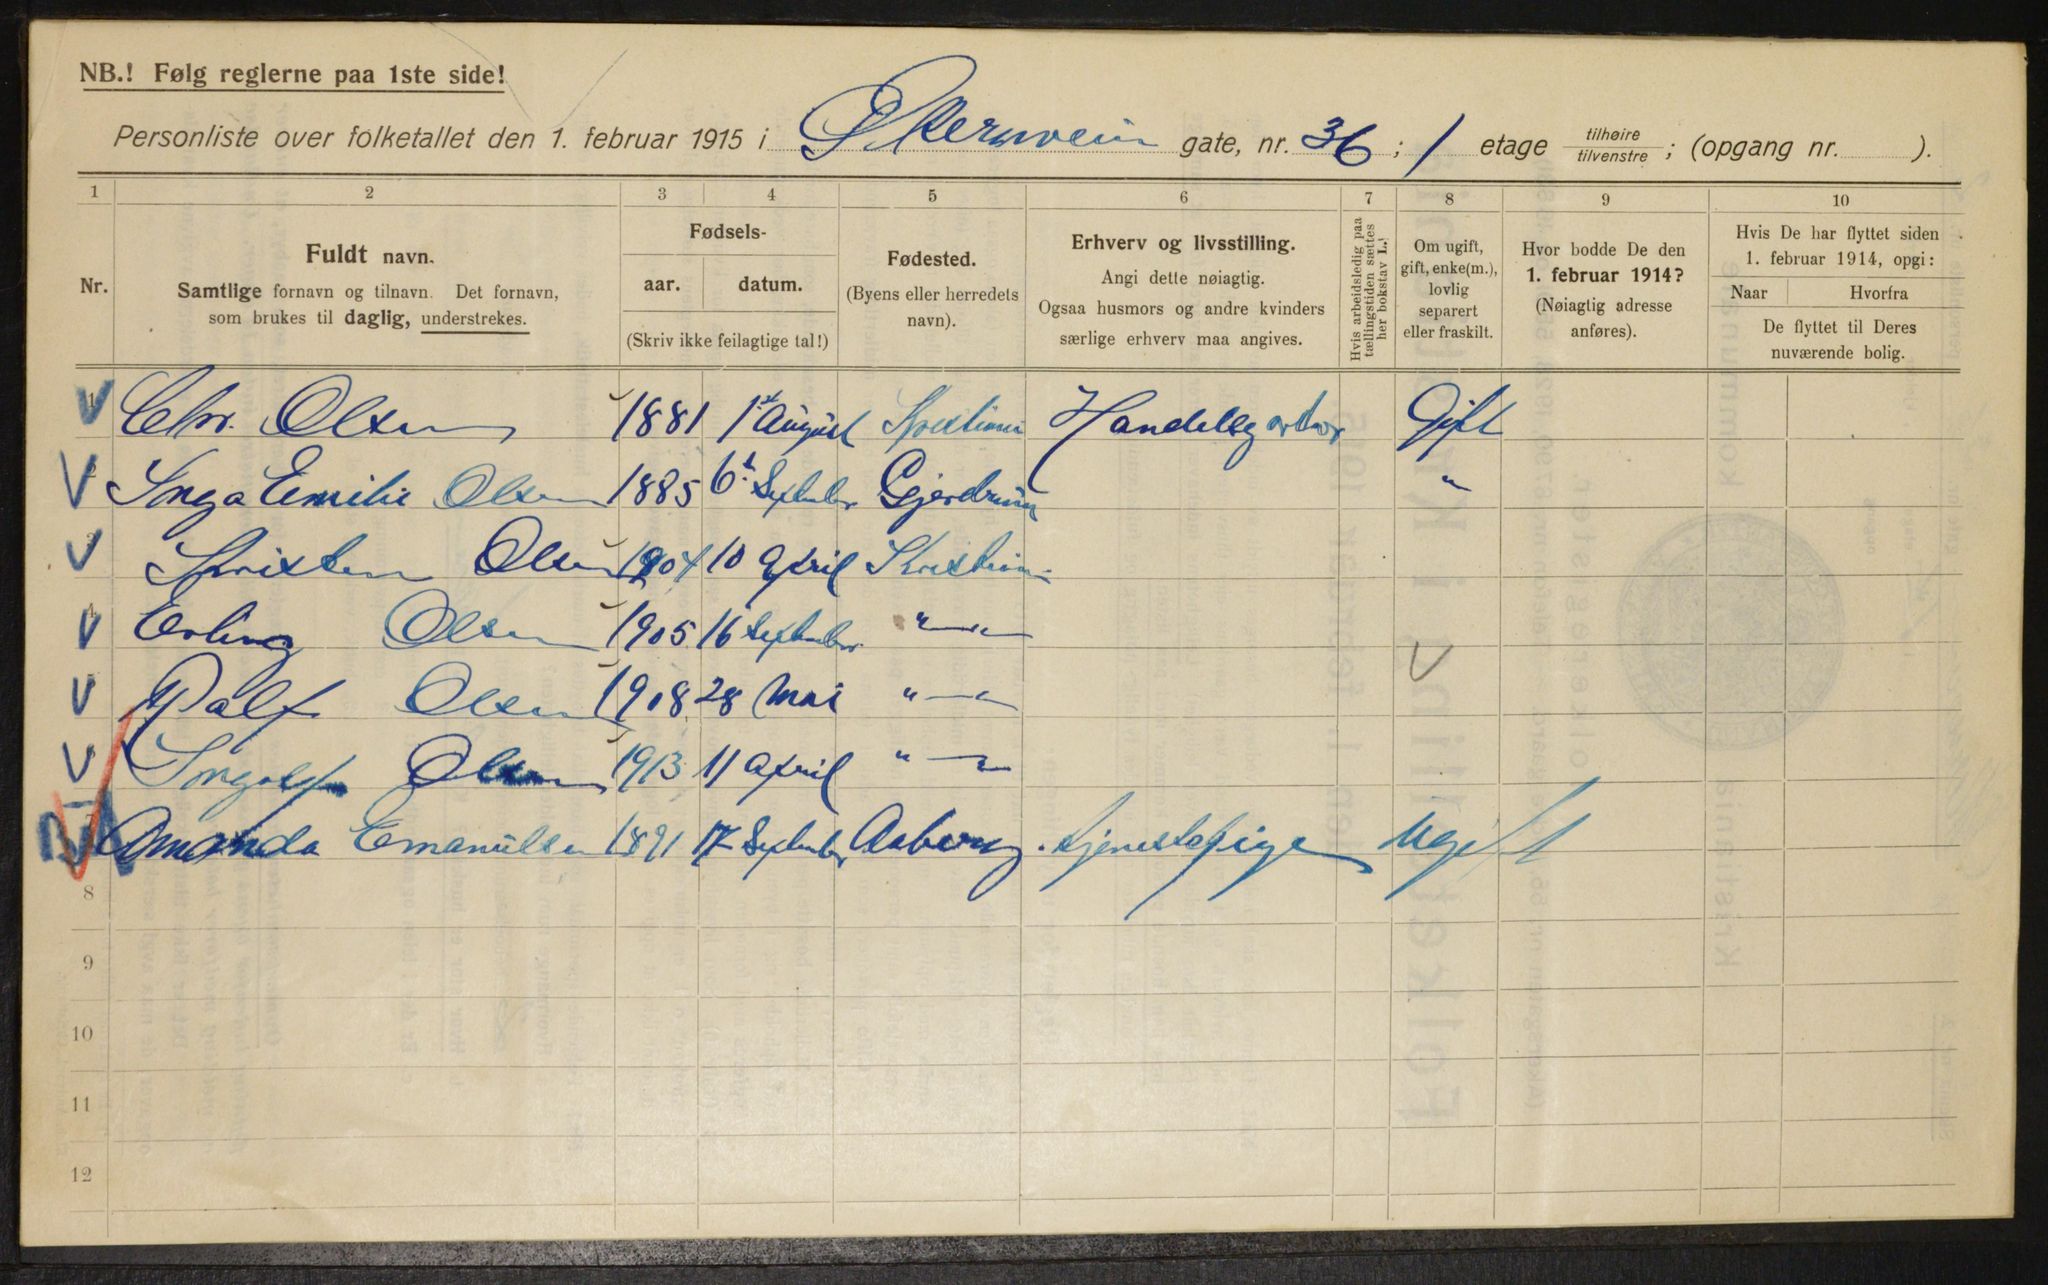 NB.! Følg reglerne paa 1ste side!
Personliste over folketallet den 1. februar 1915 i Økernveien gate, nr. 36; 1 etage tilhøire tilvenstre; (opgang nr. ).
1 2 3 4 5 6 7 8 9 10
Nr.
Fuldt navn.
Samtlige fornavn og tilnavn. Det fornavn,
som brukes til daglig, understrekes.
Fødsels-
aar. datum.
(Skriv ikke feilagtige tal!)
Fødested.
(Byens eller herredets
navn).
Erhverv og livsstilling.
Angi dette nøiagtig.
Ogsaa husmors og andre kvinders
særlige erhverv maa angives.
Hvis arbeidsledig paa
tællingstiden sættes
her bokstav L.!
Om ugift,
gift, enke(m.),
lovlig
separert
eller fraskilt.
Hvor bodde De den
1. februar 1914?
(Nøiagtig adresse
anføres).
Hvis De har flyttet siden
1. februar 1914, opgi:
Naar Hvorfra
De flyttet til Deres
nuværende bolig.
1 Chr. Olsen 1881 1st August Kristiania Gift
2 Inga Emilie Olsen 1885 6t September Gjerdrum "
3 Kristen Olsen 1904 10 April Kristiania
4 Erling Olsen 1905 16 September "—"
5 Ralf Olsen 1908 28 Mai "—"
6 Ingolf Olsen 1913 11 April "—"
7 Amanda Emanuelsen 1891 17 September Aaberg Tjenestepige Ugift
8
9
10
11
12